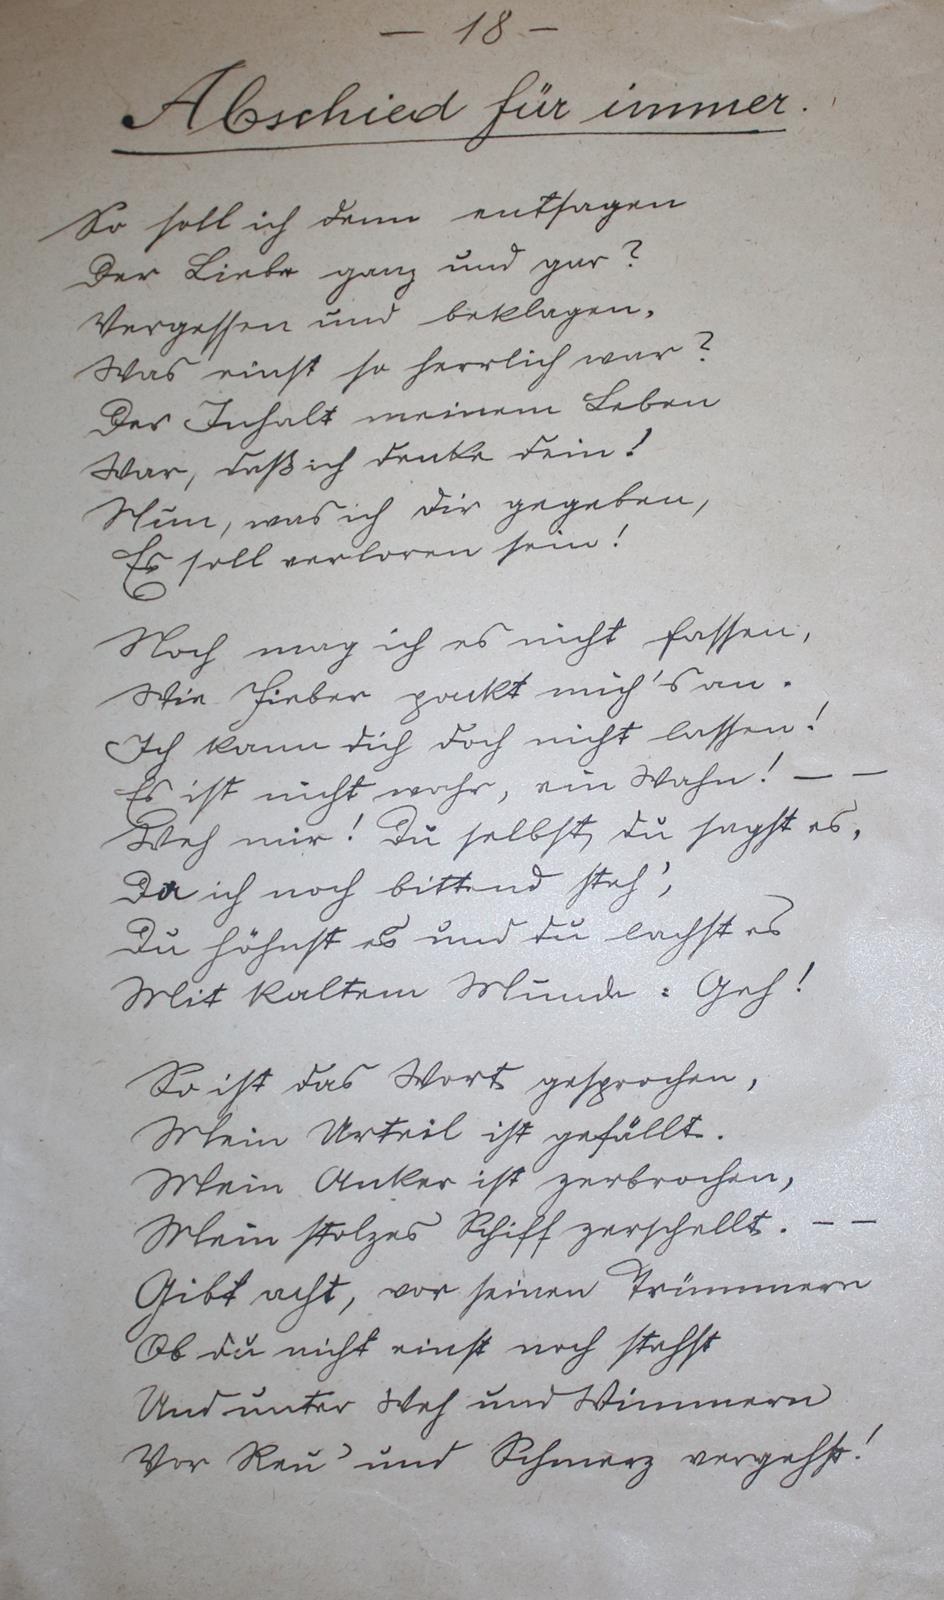 — 18 —
Abschied für immer.
So soll ich denn entsagen
Der Liebe ganz und gar?
Vergessen und beklagen,
Was einst so herrlich war?
Der Inhalt meinem Leben
War, daß ich denke dein!
Nun, was ich dir gegeben,
Es soll verloren sein!
Noch mag ich es nicht fassen,
Wie Fieber packt mich's an.
Ich kann dich doch nicht lassen!
Es ist nicht wahr, ein Wahn! — —
Weh mir! Du selbst, du sagst es,
Da ich noch bittend steh',
Du höhnst es und du lachst es
Mit kaltem Munde: Geh!
So ist das Wort gesprochen,
Mein Urteil ist gefällt.
Mein Anker ist zerbrochen,
Mein stolzes Schiff zerschellt. — —
Gibt acht, vor seinen Trümmern
Ob du nicht einst noch stehst
Und unter Weh und Wimmern
Vor Reu' und Schmerz vergehst!